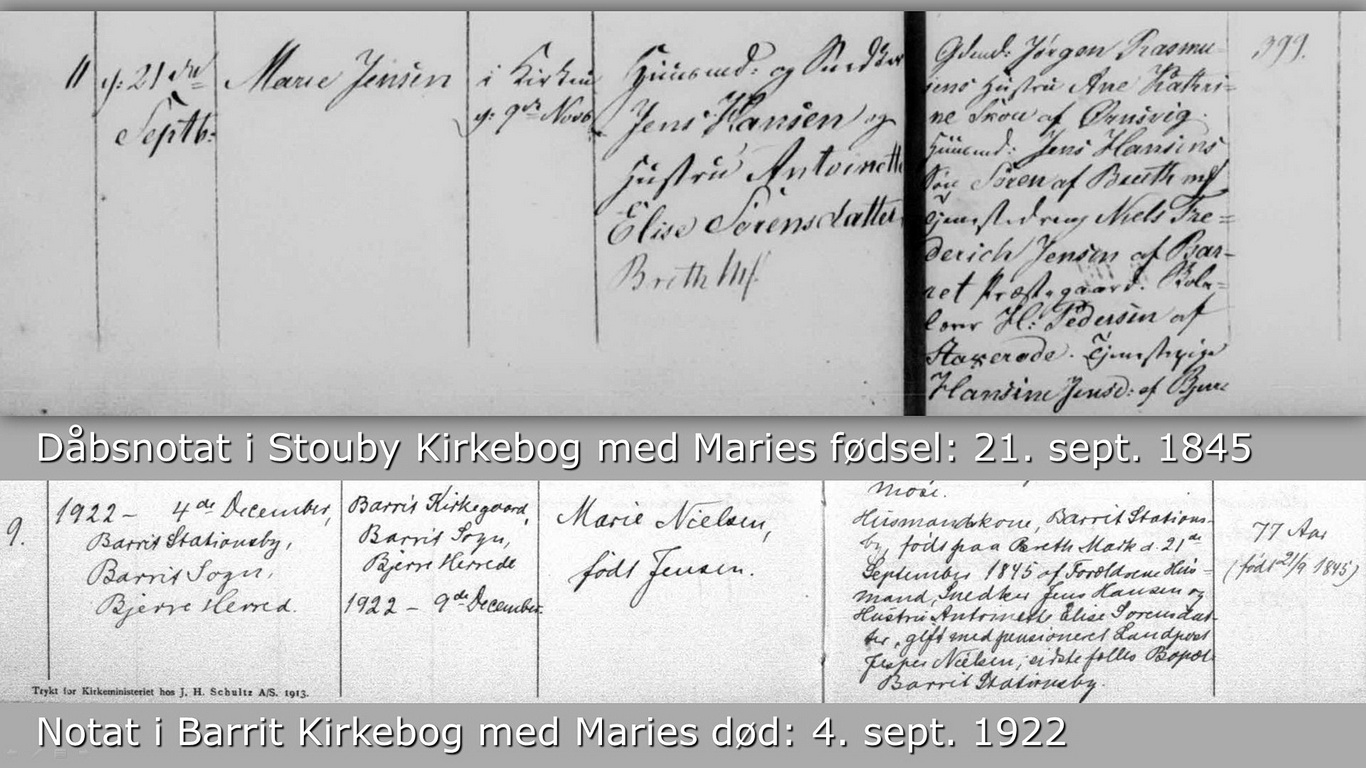 11
d: 21de
Septb:
Marie Jensen
i Kirken
d: 9de Novb.
Huusmd: og Snedker
Jens Hansen og
Hustru Antoinette
Elise Sørensdatter
Breth Mf
Gdmd: Jørgen Rasmu=
sens Hustru Ane Kathri=
ne Skou af Ørnsvig.
Huusmd: Jens Hansens
Søn Søren af Breth mf
Tjenestedreng Niels Fre=
derich Jensen af Bar=
ret Præstegaard. Skole=
lærer H: Pedersen af
Staxerode. Tjenestepige
Hansine Jensd: af Bjerre
399.
Dåbsnotat i Stouby Kirkebog med Maries fødsel: 21. sept. 1845
9.
1922 – 4de December,
Barrit Stationsby,
Barrit Sogn,
Bjerre Herred.
Barrit Kirkegaard,
Barrit Sogn,
Bjerre Herrede
1922 – 9de December.
Marie Nielsen,
født Jensen.
mose.
Husmandskone, Barrit Stations-
by, født paa Breth Mark d. 21de
September 1845 af Forældrene Hus-
mand, Snedker Jens Hansen og
Hustru Antoinette Elise Sørensdat-
ter, gift med pensioneret Landpost
Jesper Nielsen; sidste fælles Bopæl
Barrit Stationsby.
77 Aar
(født 21/9 1845)
Trykt for Kirkeministeriet hos J. H. Schultz A/S. 1913.
Notat i Barrit Kirkebog med Maries død: 4. sept. 1922